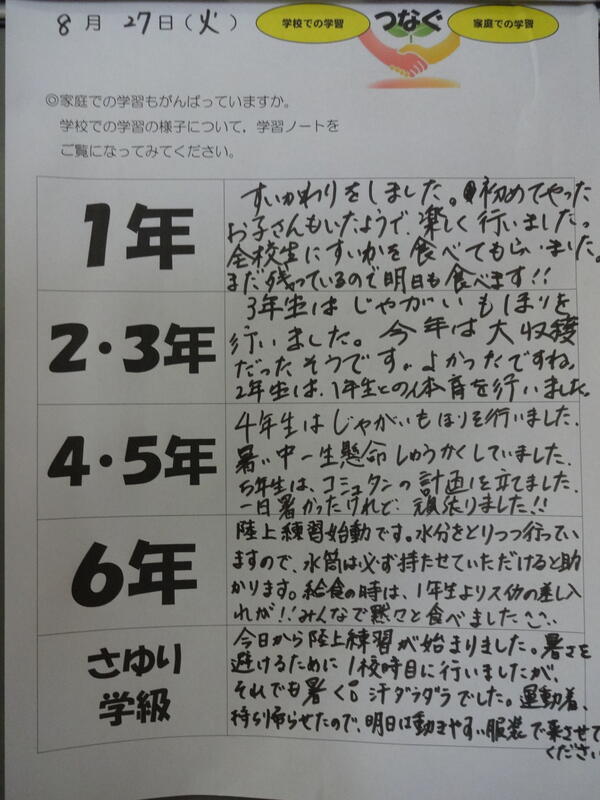 8月27日(火)
学校での学習
つなぐ
家庭での学習
◎家庭での学習もがんばっていますか。
学校での学習の様子について，学習ノートを
ご覧になってみてください。
1年
すいかわりをしました。初めてやった
お子さんもいたようで、楽しく行いました。
全校生にすいかを食べてもらいました。
まだ残っているので明日も食べます!!
2・3年
3年生はじゃがいもほりを
行いました。今年は大収穫
だったそうです。よかったですね。
2年生は、1年生との体育を行いました。
4・5年
4年生はじゃがいもほりを行いました。
暑い中一生懸命しゅうかくしていました。
5年生は、コミュタンの計画を立てました。
一日暑かったけれど、頑張りました!!
6年
陸上練習始動です。水分をとりつつ行ってい
ますので、水筒は必ず持たせていただけると助
かります。給食の時は、1年生よりスイカの差し入
れが!!みんなで黙々と食べました
さゆり
学級
今日から陸上練習が始まりました。暑さを
避けるために1校時目に行いましたが、
それでも暑く汗ダラダラでした。運動着、
持ち帰らせたので、明日は動きやすい服装で来させて
ください